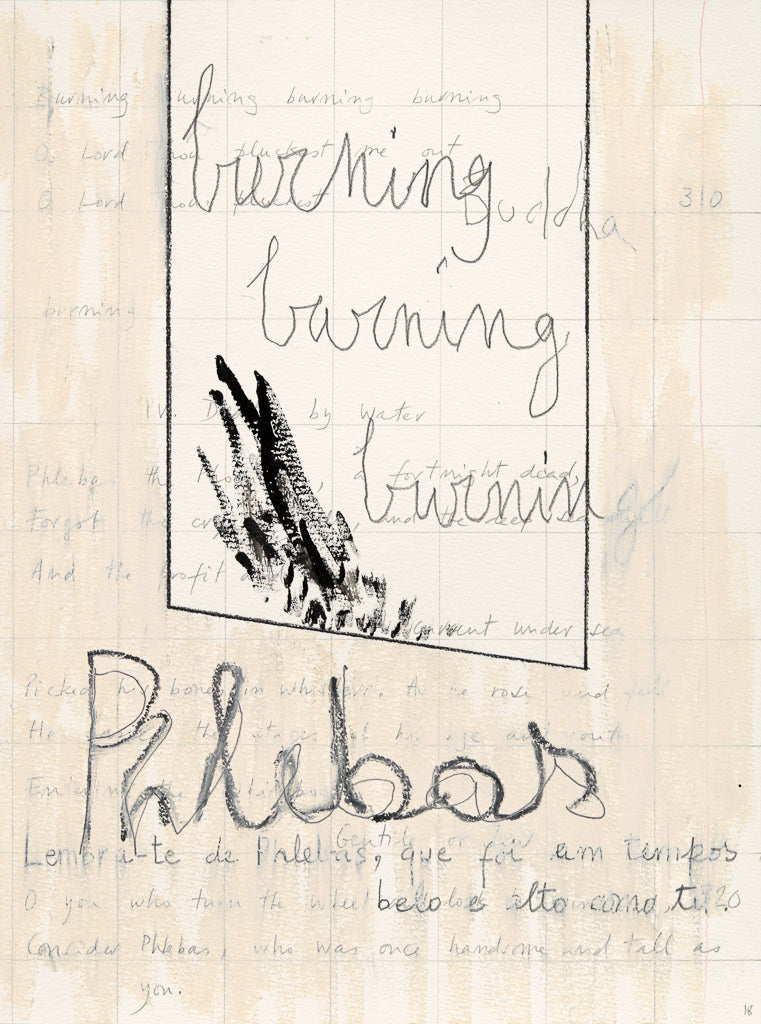 Burning burning burning burning
O Lord Thou pluckest me out
burning
O Lord Thou pluckest
Buddha
310
burning
burning
IV. by water
Phlebas the a fortnight dead,
Forgot the and the deep sea
burning
And the profit
current under sea
Picked his bones in whispers. As he rose and fell
He passed the stages of his age and youth
Entering the
Phlebas
Gentile or Jew
Lembra-te de Phlebas, que foi em tempos
belo e alto como tu.
O you who turn the wheel 320
Consider Phlebas, who was once handsome and tall as
you.
18